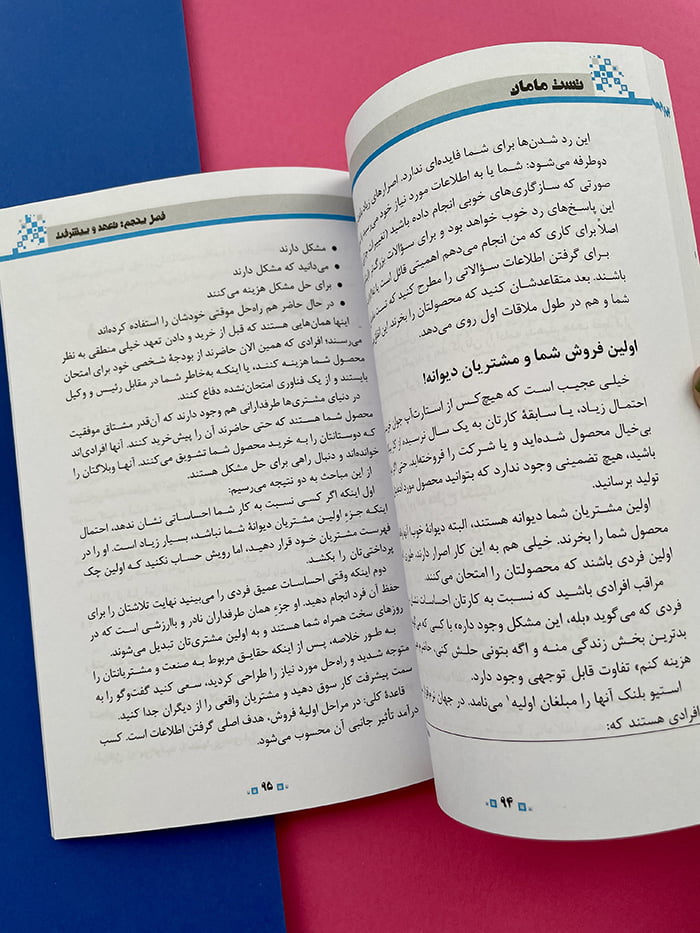 تست مامان
این رد شدن‌ها برای شما فایده‌ای ندارد. اصرارهای
دوطرفه می‌شود: شما یا به اطلاعات مورد نیاز خود
صورتی که سازگاری‌های خوبی انجام داده باشید
این پاسخ‌های رد خوب خواهد بود و برای سؤالات
اصلاً برای کاری که من انجام می‌دهم اهمیتی قائل است
برای گرفتن اطلاعات سؤالاتی را مطرح کنید که
باشند. بعد متقاعدشان کنید که محصولتان را بخرند. این
شما و هم در طول ملاقات اول روی می‌دهد.
اولین فروش شما و مشتریان دیوانه!
خیلی عجیب است که هیچ‌کس از استارت‌آپ جوان
احتمال زیاد، یا سابقهٔ کارتان به یک سال نرسیده
بی‌خیال محصول شده‌اید و یا شرکت را فروخته‌اید. حتی اگر
باشید، هیچ تضمینی وجود ندارد که بتوانید محصول مورد
تولید برسانید.
اولین مشتریان شما دیوانه هستند، البته دیوانهٔ خوب!
محصول شما را بخرند. خیلی هم به این کار اصرار دارند.
اولین فردی باشند که محصولتان را امتحان می‌کنند.
مراقب افرادی باشید که نسبت به کارتان احساسات
فردی که می‌گوید «بله، این مشکل وجود داره» با کسی که
بدترین بخش زندگی منه و اگه بتونی حلش کنی، حاضرم
هزینه کنم» تفاوت قابل توجهی وجود دارد.
استیو بلنک آنها را مبلغان اولیه۱ می‌نامد. در جهان
افرادی هستند که:
۹۴
فصل پنجم: تعهد و پیشرفت
• مشکل دارند
• می‌دانید که مشکل دارند
• برای حل مشکل هزینه می‌کنند
• در حال حاضر هم راه‌حل موقتی خودشان را استفاده کرده‌اند
اینها همان‌هایی هستند که قبل از خرید و دادن تعهد خیلی منطقی به نظر
می‌رسند؛ افرادی که همین الان حاضرند از بودجهٔ شخصی خود برای امتحان
محصول شما هزینه کنند، یا اینکه به‌خاطر شما در مقابل رئیس و وکیل
بایستند و از یک فناوری امتحان‌نشده دفاع کنند.
در دنیای مشتری‌ها طرفدارانی هم وجود دارند که آن‌قدر مشتاق موفقیت
محصول شما هستند که حتی حاضرند آن را پیش‌خرید کنند. آنها افرادی‌اند
که دوستانتان را به خرید محصول شما تشویق می‌کنند. آنها وبلاگتان را
خوانده‌اند و دنبال راهی برای حل مشکل هستند.
از این مباحث به دو نتیجه می‌رسیم:
اول اینکه اگر کسی نسبت به کار شما احساساتی نشان ندهد، احتمال
اینکه جزءِ اولین مشتریان دیوانهٔ شما نباشد، بسیار زیاد است. او را در
فهرست مشتریان خود قرار دهید، اما رویش حساب نکنید که اولین چک
پرداختی‌تان را بکشد.
دوم اینکه وقتی احساسات عمیق فردی را می‌بینید نهایت تلاشتان را برای
حفظ آن فرد انجام دهید. او جزءِ همان طرفداران نادر و باارزشی است که در
روزهای سخت همراه شما هستند و به اولین مشتری‌تان تبدیل می‌شوند.
به طور خلاصه، پس از اینکه حقایق مربوط به صنعت و مشتریانتان را
متوجه شدید و راه‌حل مورد نیاز را طراحی کردید، سعی کنید گفت‌وگو را به
سمت پیشرفت کار سوق دهید و مشتریان واقعی را از دیگران جدا کنید.
قاعدهٔ کلی: در مراحل اولیهٔ فروش، هدف اصلی گرفتن اطلاعات است. کسب
درآمد تأثیر جانبی آن محسوب می‌شود.
۹۵